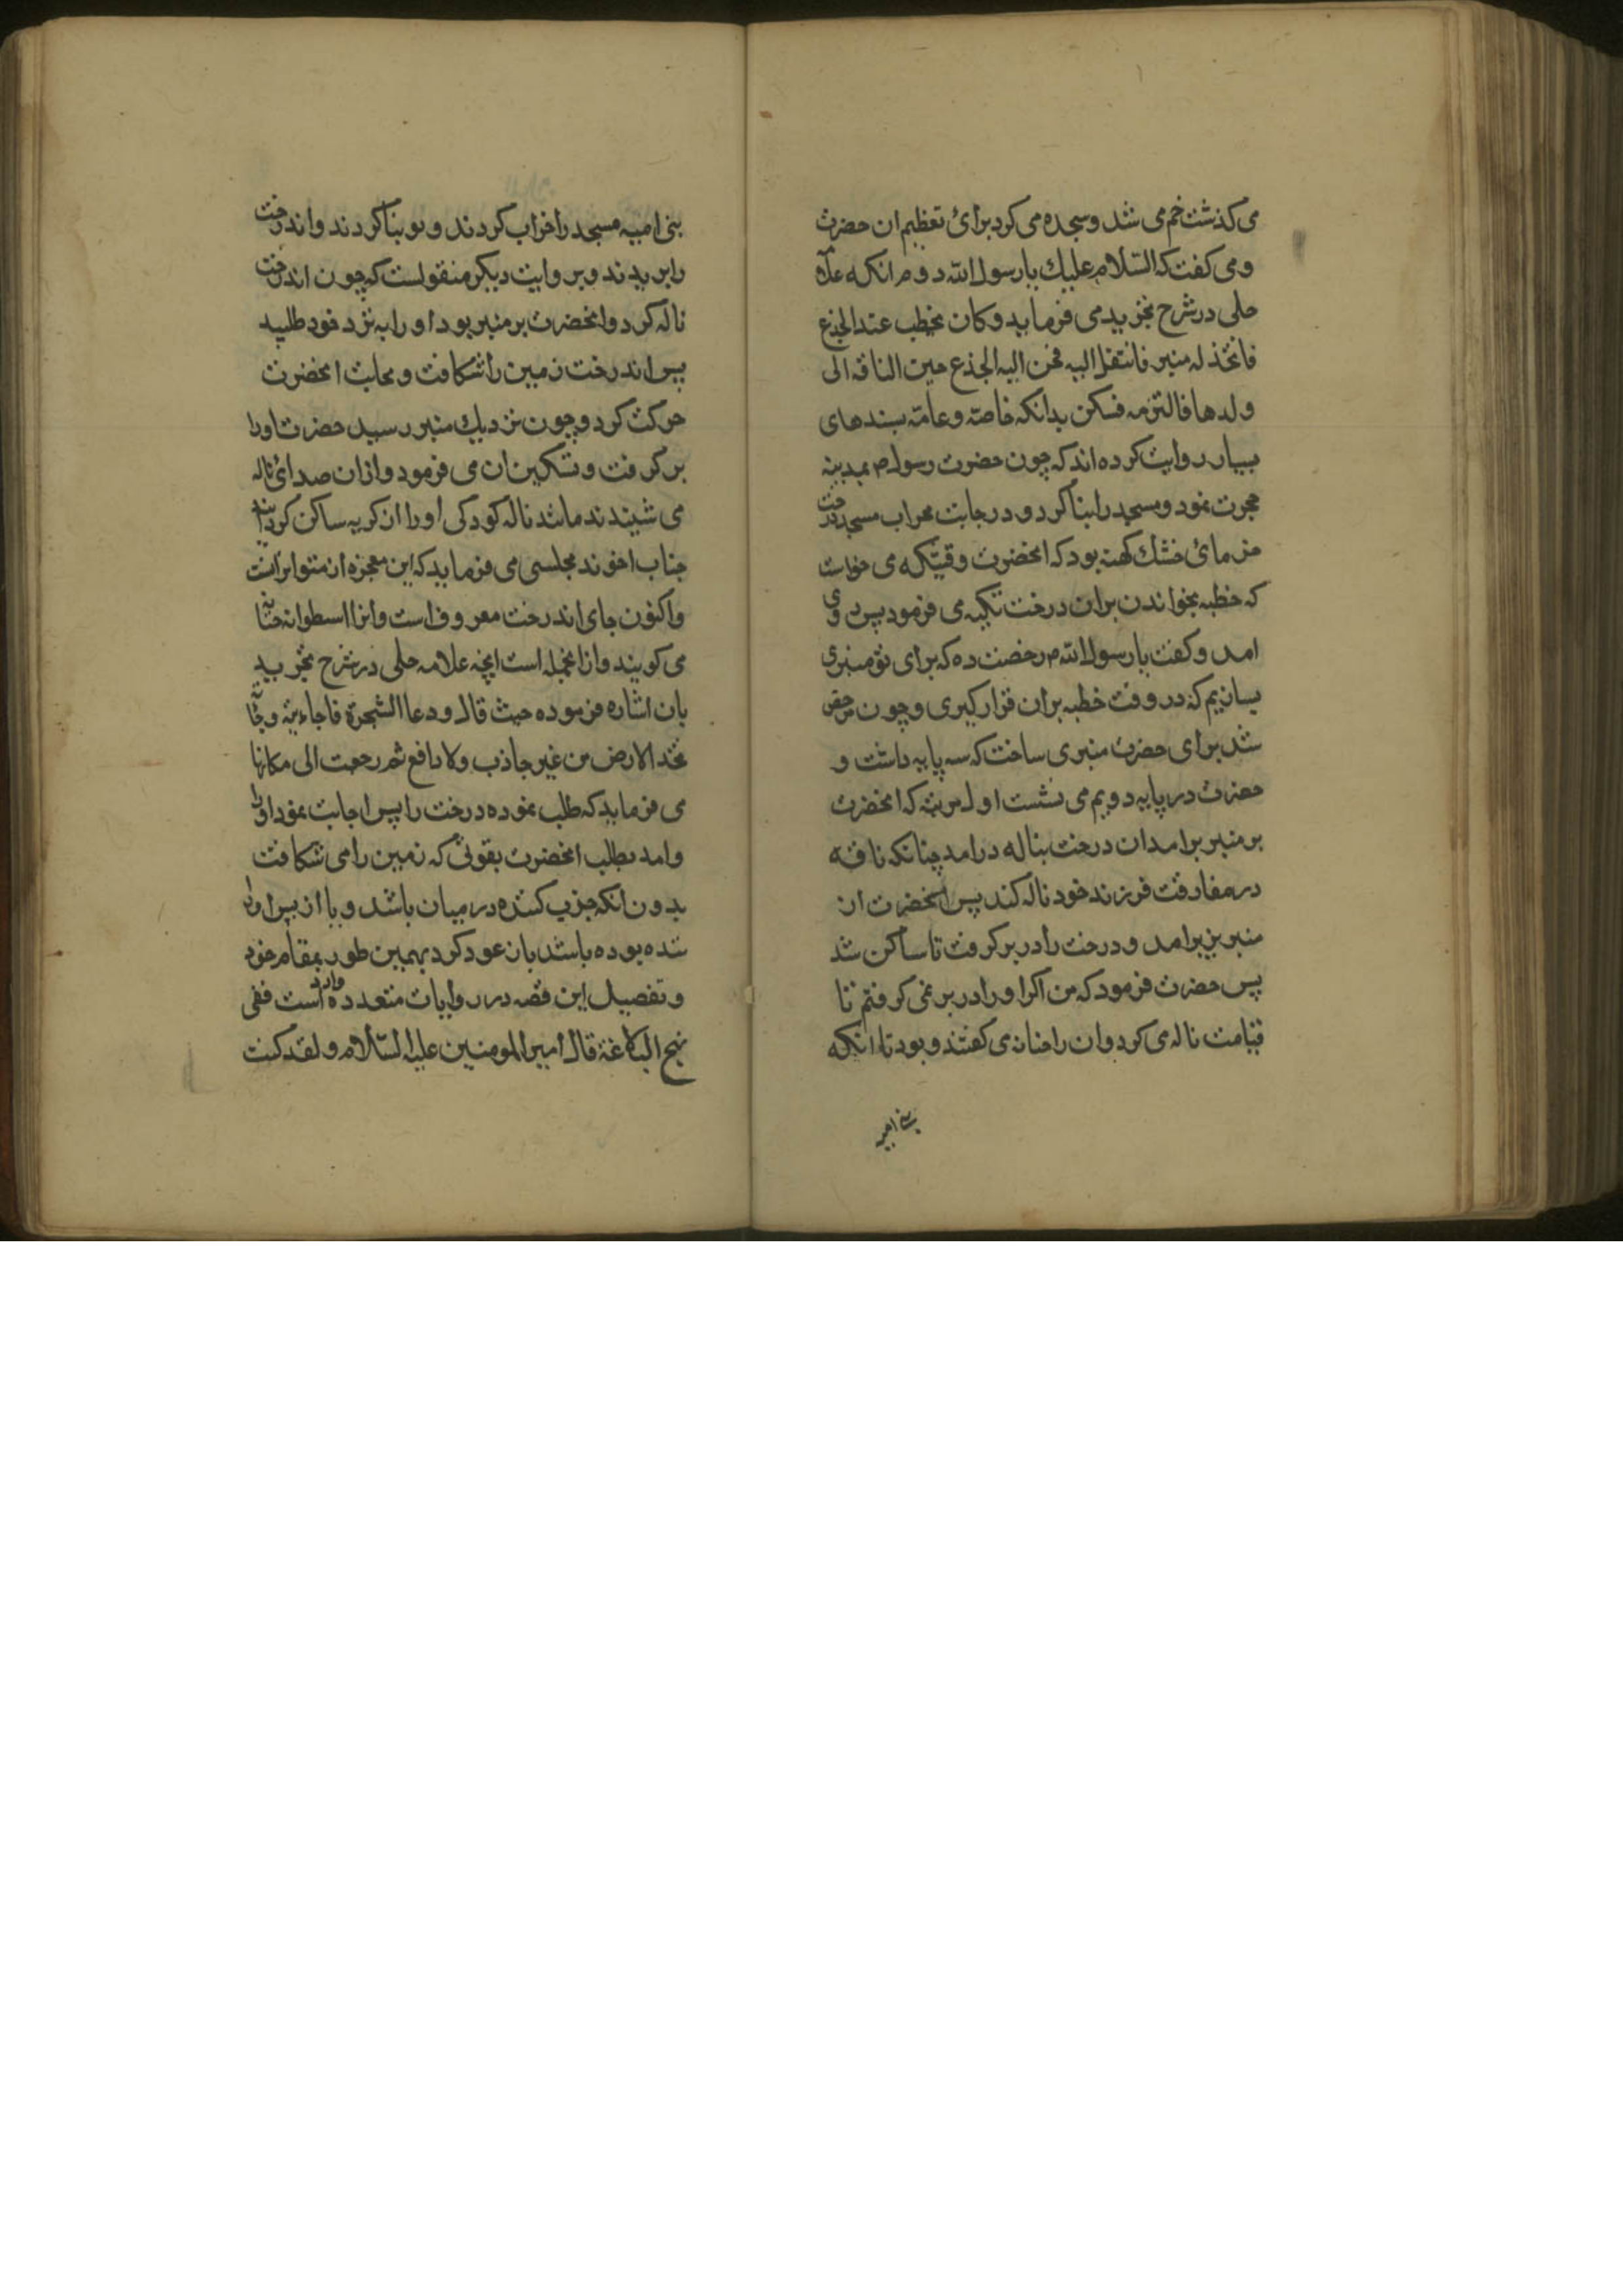 می کذشت خم می شد و سجده می کرد برائ تعظیم ان حضرت
و می کفت که السّلام علیك یا رسول الله دوم انکه علامه
حلی در شرح تجرید می فرماید و کان یخطب عند الجذع
فاتخذ له منبر فانتقل الیه فحن الیه الجذع حنین الناقه الی
ولدها فالتزمه فسکن بدانکه خاصّه و عامّه بسندهای
بسیار روایت کرده اند که چون حضرت رسول ص بمدینه
هجرت نمود و مسجد را بنا کرد و در جانب محراب مسجد درخت
خرمائ خشك کهنه بود که انحضرت وقتیکه می خواست
که خطبه بخواندن بران درخت تکیه می فرمود پس
امد و کفت یا رسول الله ص رخصت ده که برای تو منبری
بسازیم که در وقت خطبه بران قرار کیری و چون مرخص
شد برای حضرت منبری ساخت که سه پایه داشت و
حضرت در پایه دویم می نشست اول مرتبه که انحضرت
بر منبر برامد ان درخت بناله درامد چنانکه ناقه
در مفارقت فرزند خود ناله کند پس انحضرت ان
منبر بزیر امد و درخت را در بر کرفت تا ساکن شد
پس حضرت فرمود که من اکر او را در بر نمی کرفتم تا
قیامت ناله می کرد و ان را حنانه می کفتند و بود تا انکه
بنی امیه
بنی امیه مسجد را خراب کردند و نو بنا کردند و اندرخت
را بریدند و بروایت دیکر منقولست که چون اندرخت
ناله کرد و انحضرت بر منبر بود او را به نزد خود طلبید
پس اندرخت زمین را شکافت و بجانب انحضرت
حرکت کرد و چون نزدیك منبر رسید حضرت او را
بر کرفت و تسکین ان می فرمود و ازان صدائ ناله
می شنیدند مانند ناله کودکی او را از کریه ساکن کردانند
جناب اخوند مجلسی می فرماید که این معجزه از متواترانست
و اکنون جای اندرخت معروف است و انرا اسطوانه حنانه
می کویند و ازانجمله است انچه علامه حلی در شرح تجرید
بان اشاره فرموده حیث قال و دعا الشجرة فاجابته و جائت
تخد الارض من غیر جاذب ولا دافع ثم رجعت الی مکانها
می فرماید که طلب نموده درخت را پس اجابت نمود او را
و امد بطلب انحضرت بقوتی که زمین را می شکافت
بدون انکه جذب کننده در میان باشد و یا از پس
شده بوده باشد باز عود کرد بهمین طور بمقام خود
و تفصیل این قصه در روایات متعدده وارد است ففی
نهج البلاغة قال امیر المومنین علیه السّلام و لقد کنت